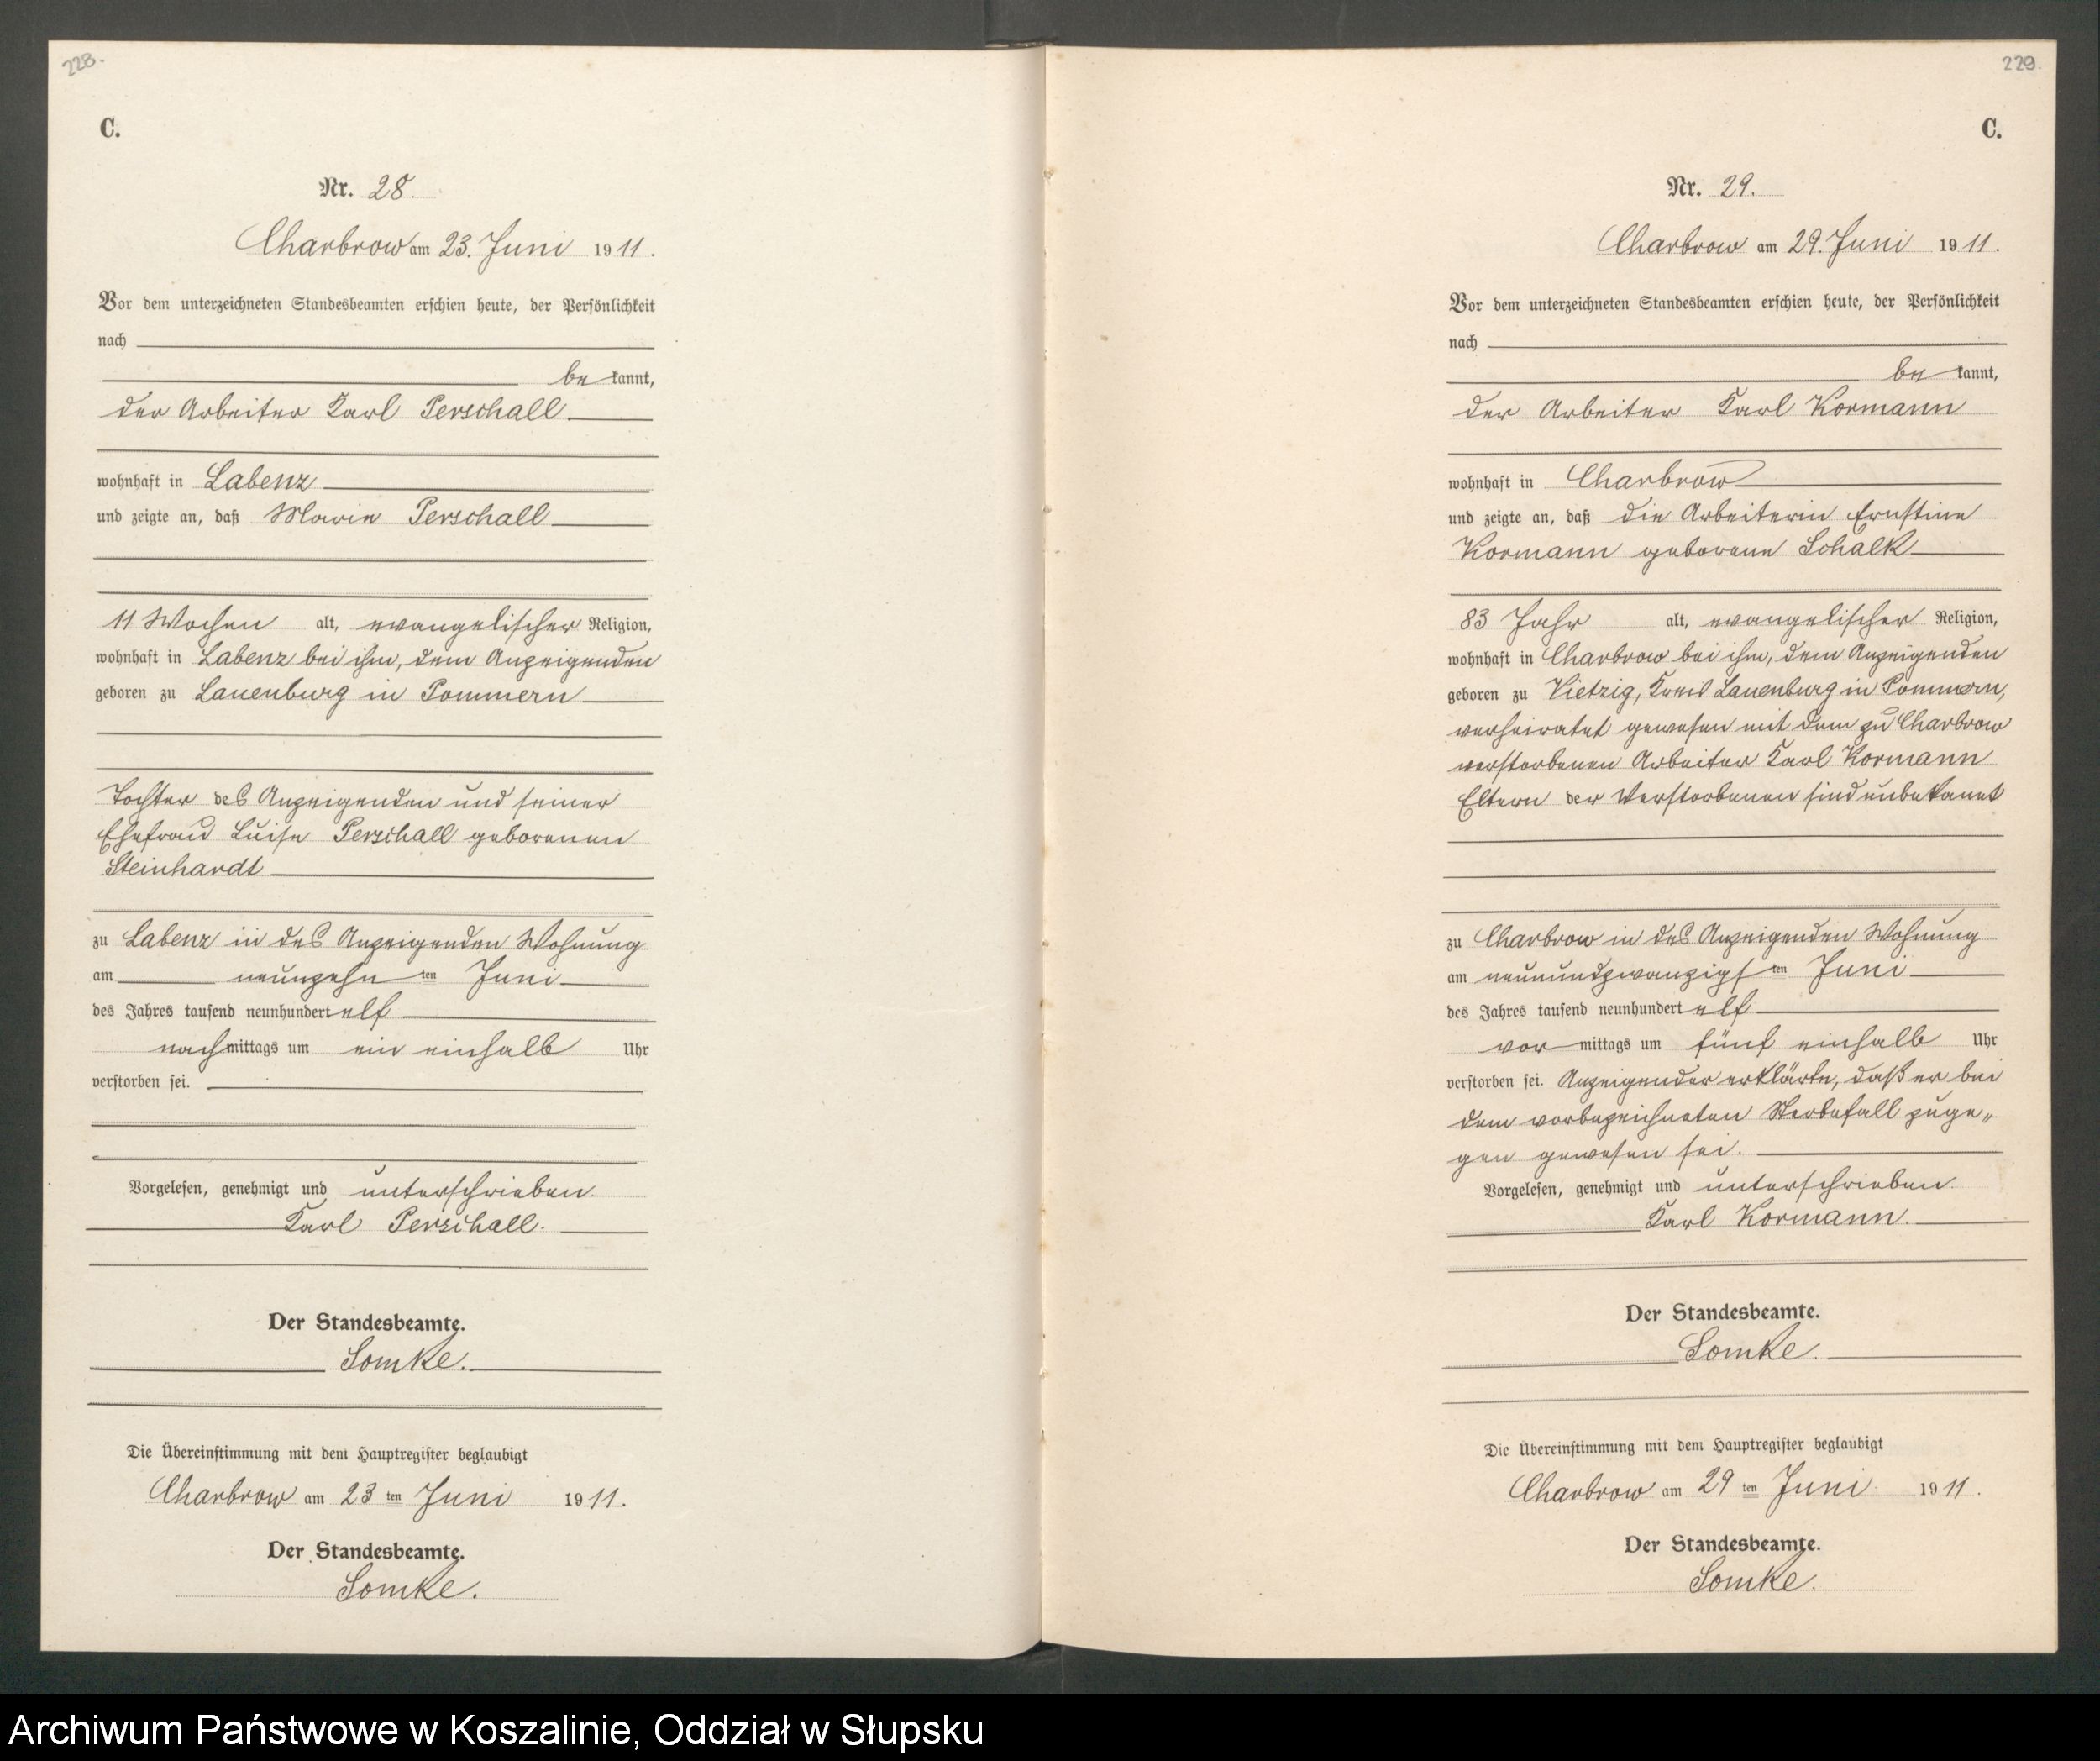 228.
C.
Nr. 28.
Charbrow am 23. Juni 1911.
Vor dem unterzeichneten Standesbeamten erschien heute, der Persönlichkeit
nach
be kannt,
der Arbeiter Karl Perschall
wohnhaft in Labenz
und zeigte an, daß Marie Perschall
11 Wochen alt, evangelischer Religion,
wohnhaft in Labenz bei ihm, dem Anzeigenden
geboren zu Lauenburg in Pommern
Tochter des Anzeigenden und seiner
Ehefrau Luise Perschall geborenen
Steinhardt
zu Labenz in des Anzeigenden Wohnung
am neunzehn ten Juni
des Jahres tausend neunhundert elf
nach mittags um ein einhalb Uhr
verstorben sei.
Vorgelesen, genehmigt und unterschrieben.
Karl Perschall.
Der Standesbeamte.
Somke.
Die Übereinstimmung mit dem Hauptregister beglaubigt
Charbrow am 23 ten Juni 1911.
Der Standesbeamte.
Somke.
229.
C.
Nr. 29.
Charbrow am 29. Juni 1911.
Vor dem unterzeichneten Standesbeamten erschien heute, der Persönlichkeit
nach
be kannt,
der Arbeiter Karl Kormann
wohnhaft in Charbrow
und zeigte an, daß die Arbeiterin Ernstine
Kormann geborene Schalk
83 Jahr alt, evangelischer Religion,
wohnhaft in Charbrow bei ihm, dem Anzeigenden
geboren zu Vietzig, Kreis Lauenburg in Pommern,
verheiratet gewesen mit dem zu Charbrow
verstorbenen Arbeiter Karl Kormann
Eltern der Verstorbenen sind unbekannt
zu Charbrow in des Anzeigenden Wohnung
am neunundzwanzigs ten Juni
des Jahres tausend neunhundert elf
vor mittags um fünf einhalb Uhr
verstorben sei. Anzeigender erklärte, daß er bei
dem vorbezeichneten Sterbefall zuge„
gen gewesen sei.
Vorgelesen, genehmigt und unterschrieben.
Karl Kormann.
Der Standesbeamte.
Somke.
Die Übereinstimmung mit dem Hauptregister beglaubigt
Charbrow am 29 ten Juni 1911.
Der Standesbeamte.
Somke.
Archiwum Państwowe w Koszalinie, Oddział w Słupsku